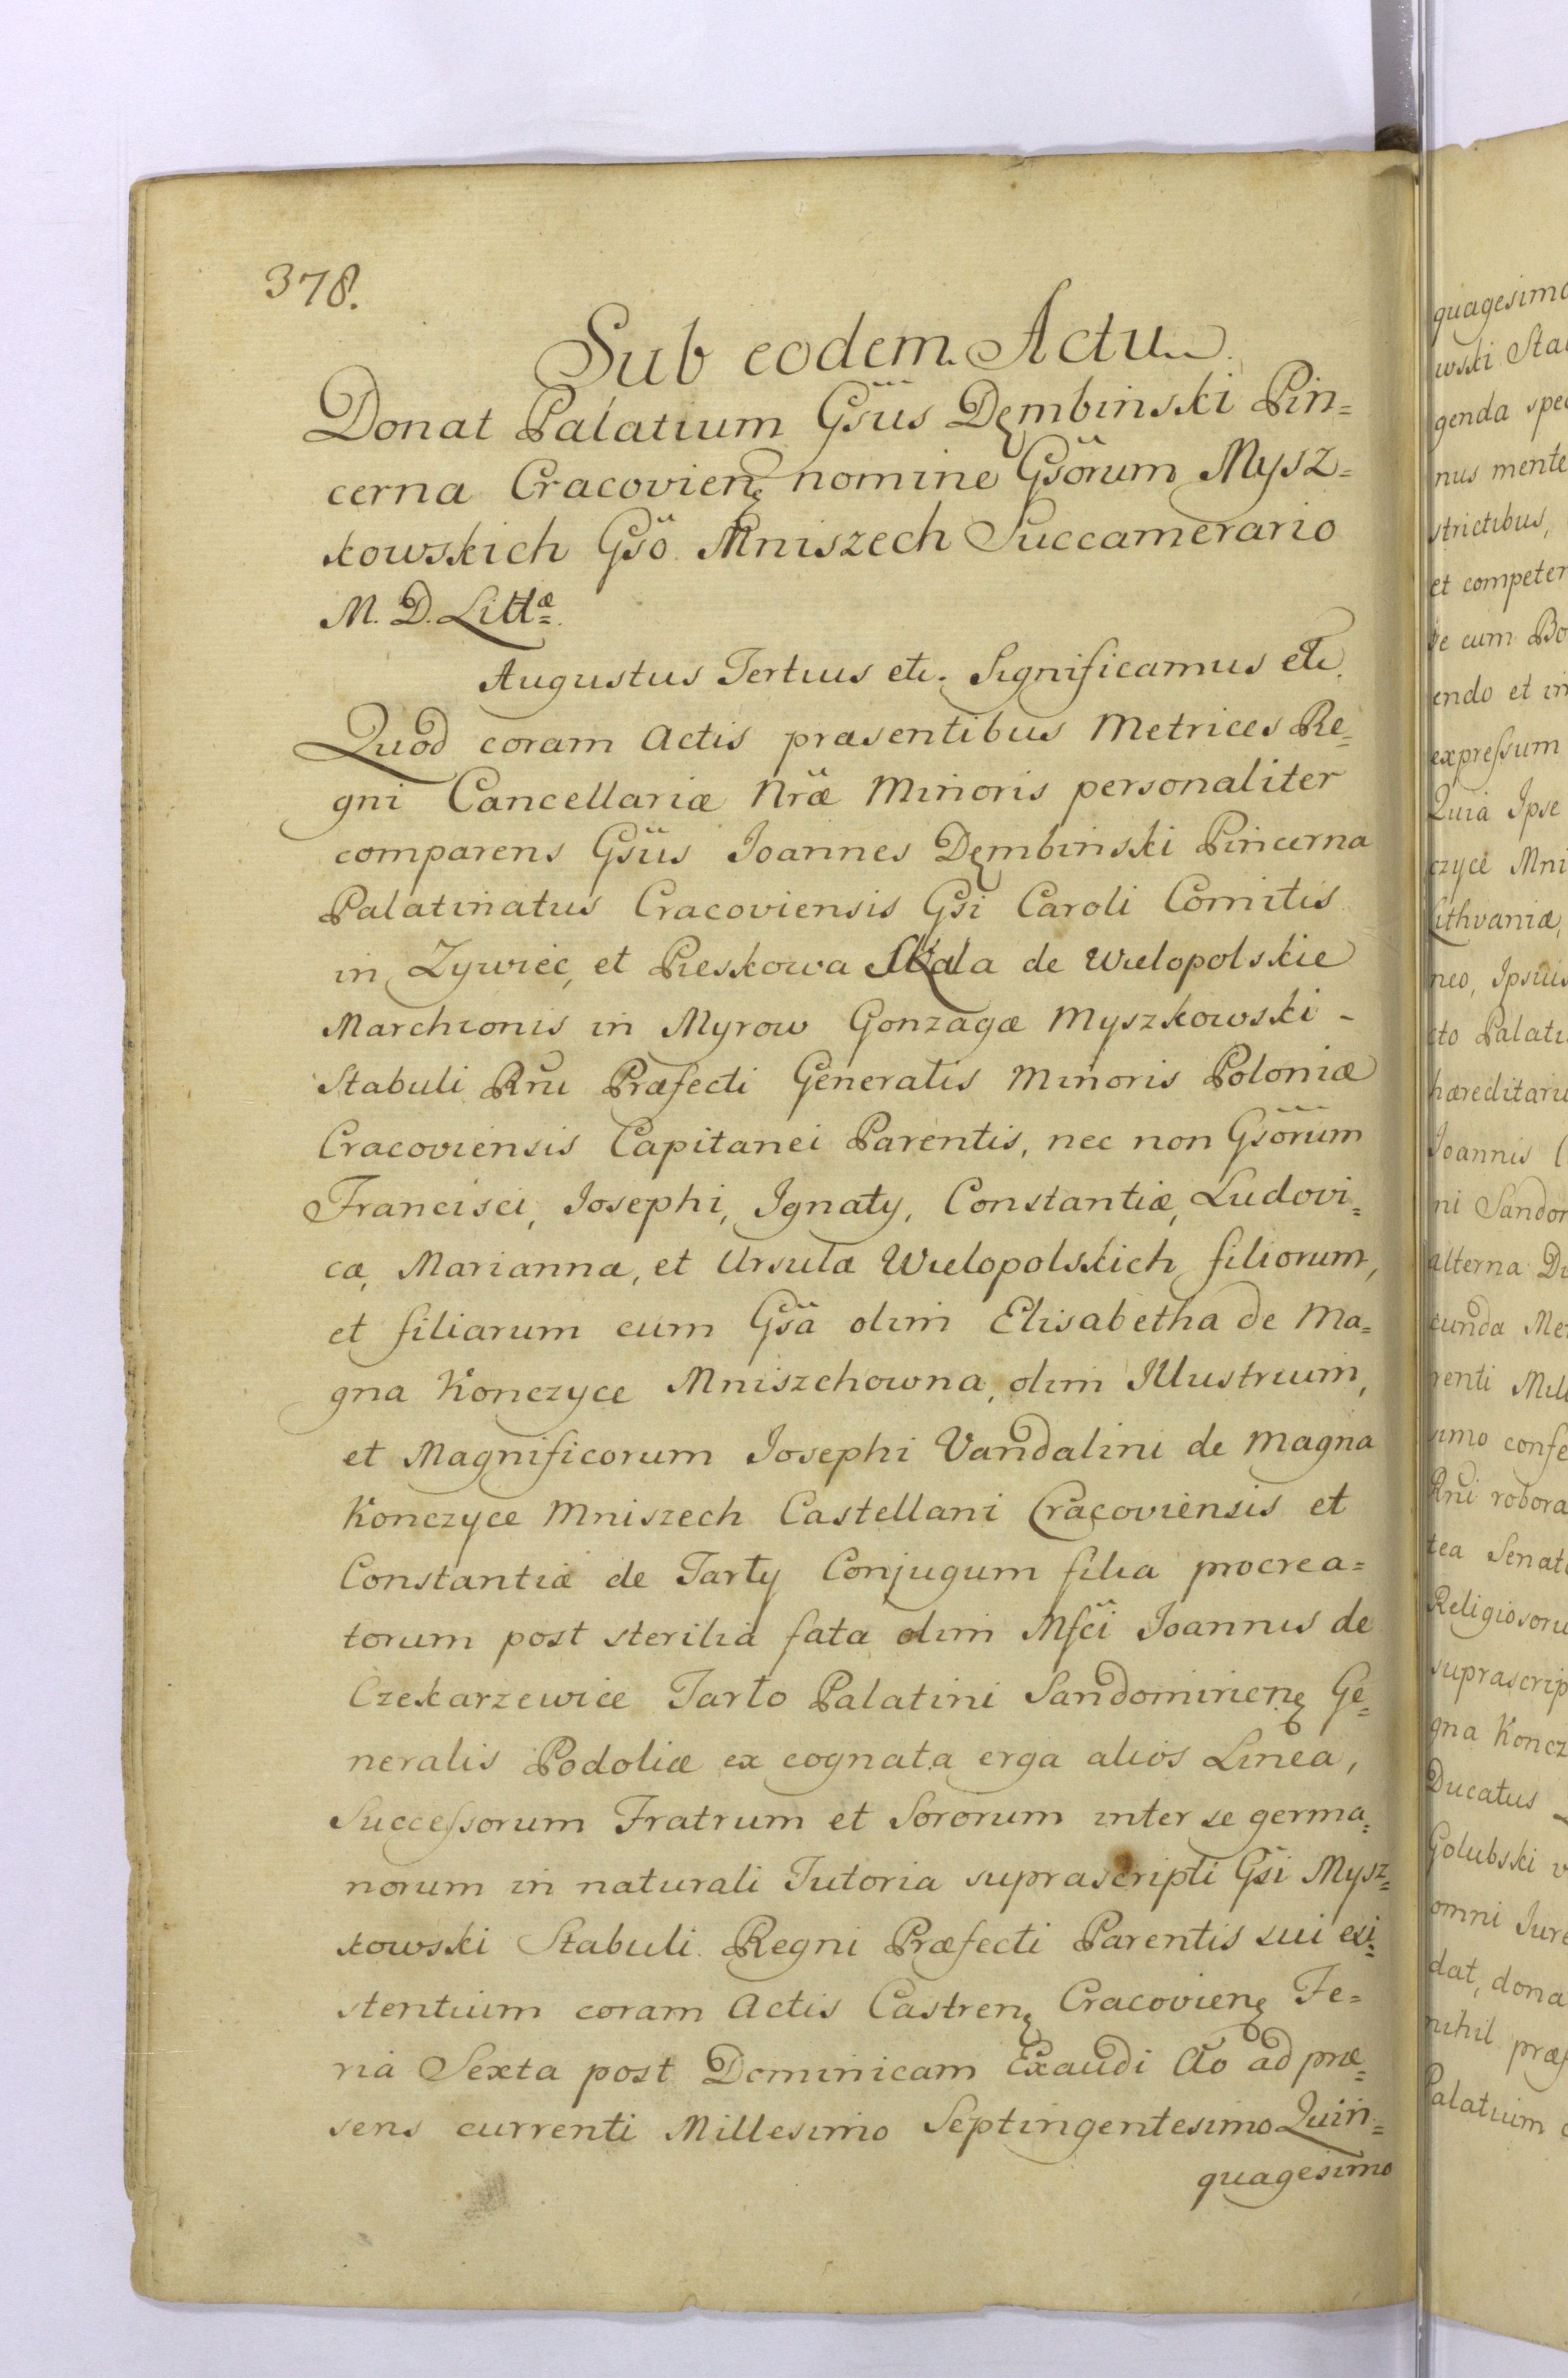 378.
Sub eodem Actu.
Donat Palatium Gsüs Dęmbinski Pin=
cerna Cracovien̨ nomine Gsörum Mysz=
kowskich Gsö Mniszech Succamerario
M. D. Littæ.
Augustus Tertius etc. Significamus etc.
Quod coram Actis præsentibus Metrices Re=
gni Cancellariæ Nræ Minoris personaliter
comparens Gsüs Joannes Dęmbinski Pincerna
Palatinatus Cracoviensis Gsi Caroli Comitis
in Zywiec, et Pieskowa Skala de Wielopolskie
Marchionis in Myrow Gonzagæ Myszkowski -
Stabuli Rni Præfecti Generalis Minoris Poloniæ
Cracoviensis Capitanei Parentis, nec non Gsörum
Francisci, Josephi, Ignaty, Constantiæ, Ludovi=
cæ, Mariannæ, et Ursulæ Wielopolskich filiorum,
et filiarum cum Gsä olim Elisabetha de Ma=
gna Konczyce Mniszchowna, olim Illustrium,
et Magnificorum Josephi Vandalini de Magna
Konczyce Mniszech Castellani Cracoviensis et
Constantiæ de Tarły Conjugum filia procrea=
torum post sterilia fata olim Mfci Joannis de
Czekarzewice Tarło Palatini Sandomirien̨ Ge=
neralis Podoliæ ex cognata erga alios Linea,
Successorum Fratrum et Sororum inter se germa=
norum in naturali Tutoria suprascripti Gsi Mysz=
kowski Stabuli Regni Præfecti Parentis sui exi=
stentium coram Actis Castren̨ Cracovien̨ Fe=
ria Sexta post Dominicam Exaudi Ao ad præ=
sens currenti Millesimo Septingentesimo Quin=
quagesimo
quagesimo
wski Sta
genda spe
nus mente
strictibus,
et competen
se cum Bo
endo et in
expressum
Quia Ipse
czyce Mni
Lithvaniæ,
neo, Ipsius
cto Palati
hæreditari
Joannis
ni Sandom
alterna Di
cunda Me
renti Mill
imo confe
Rni robora
tea Senat
Religiosoru
suprascrip
gna Koncz
Ducatus
Golubski
omni Jure
dat, dona
nihil præ
Palatium